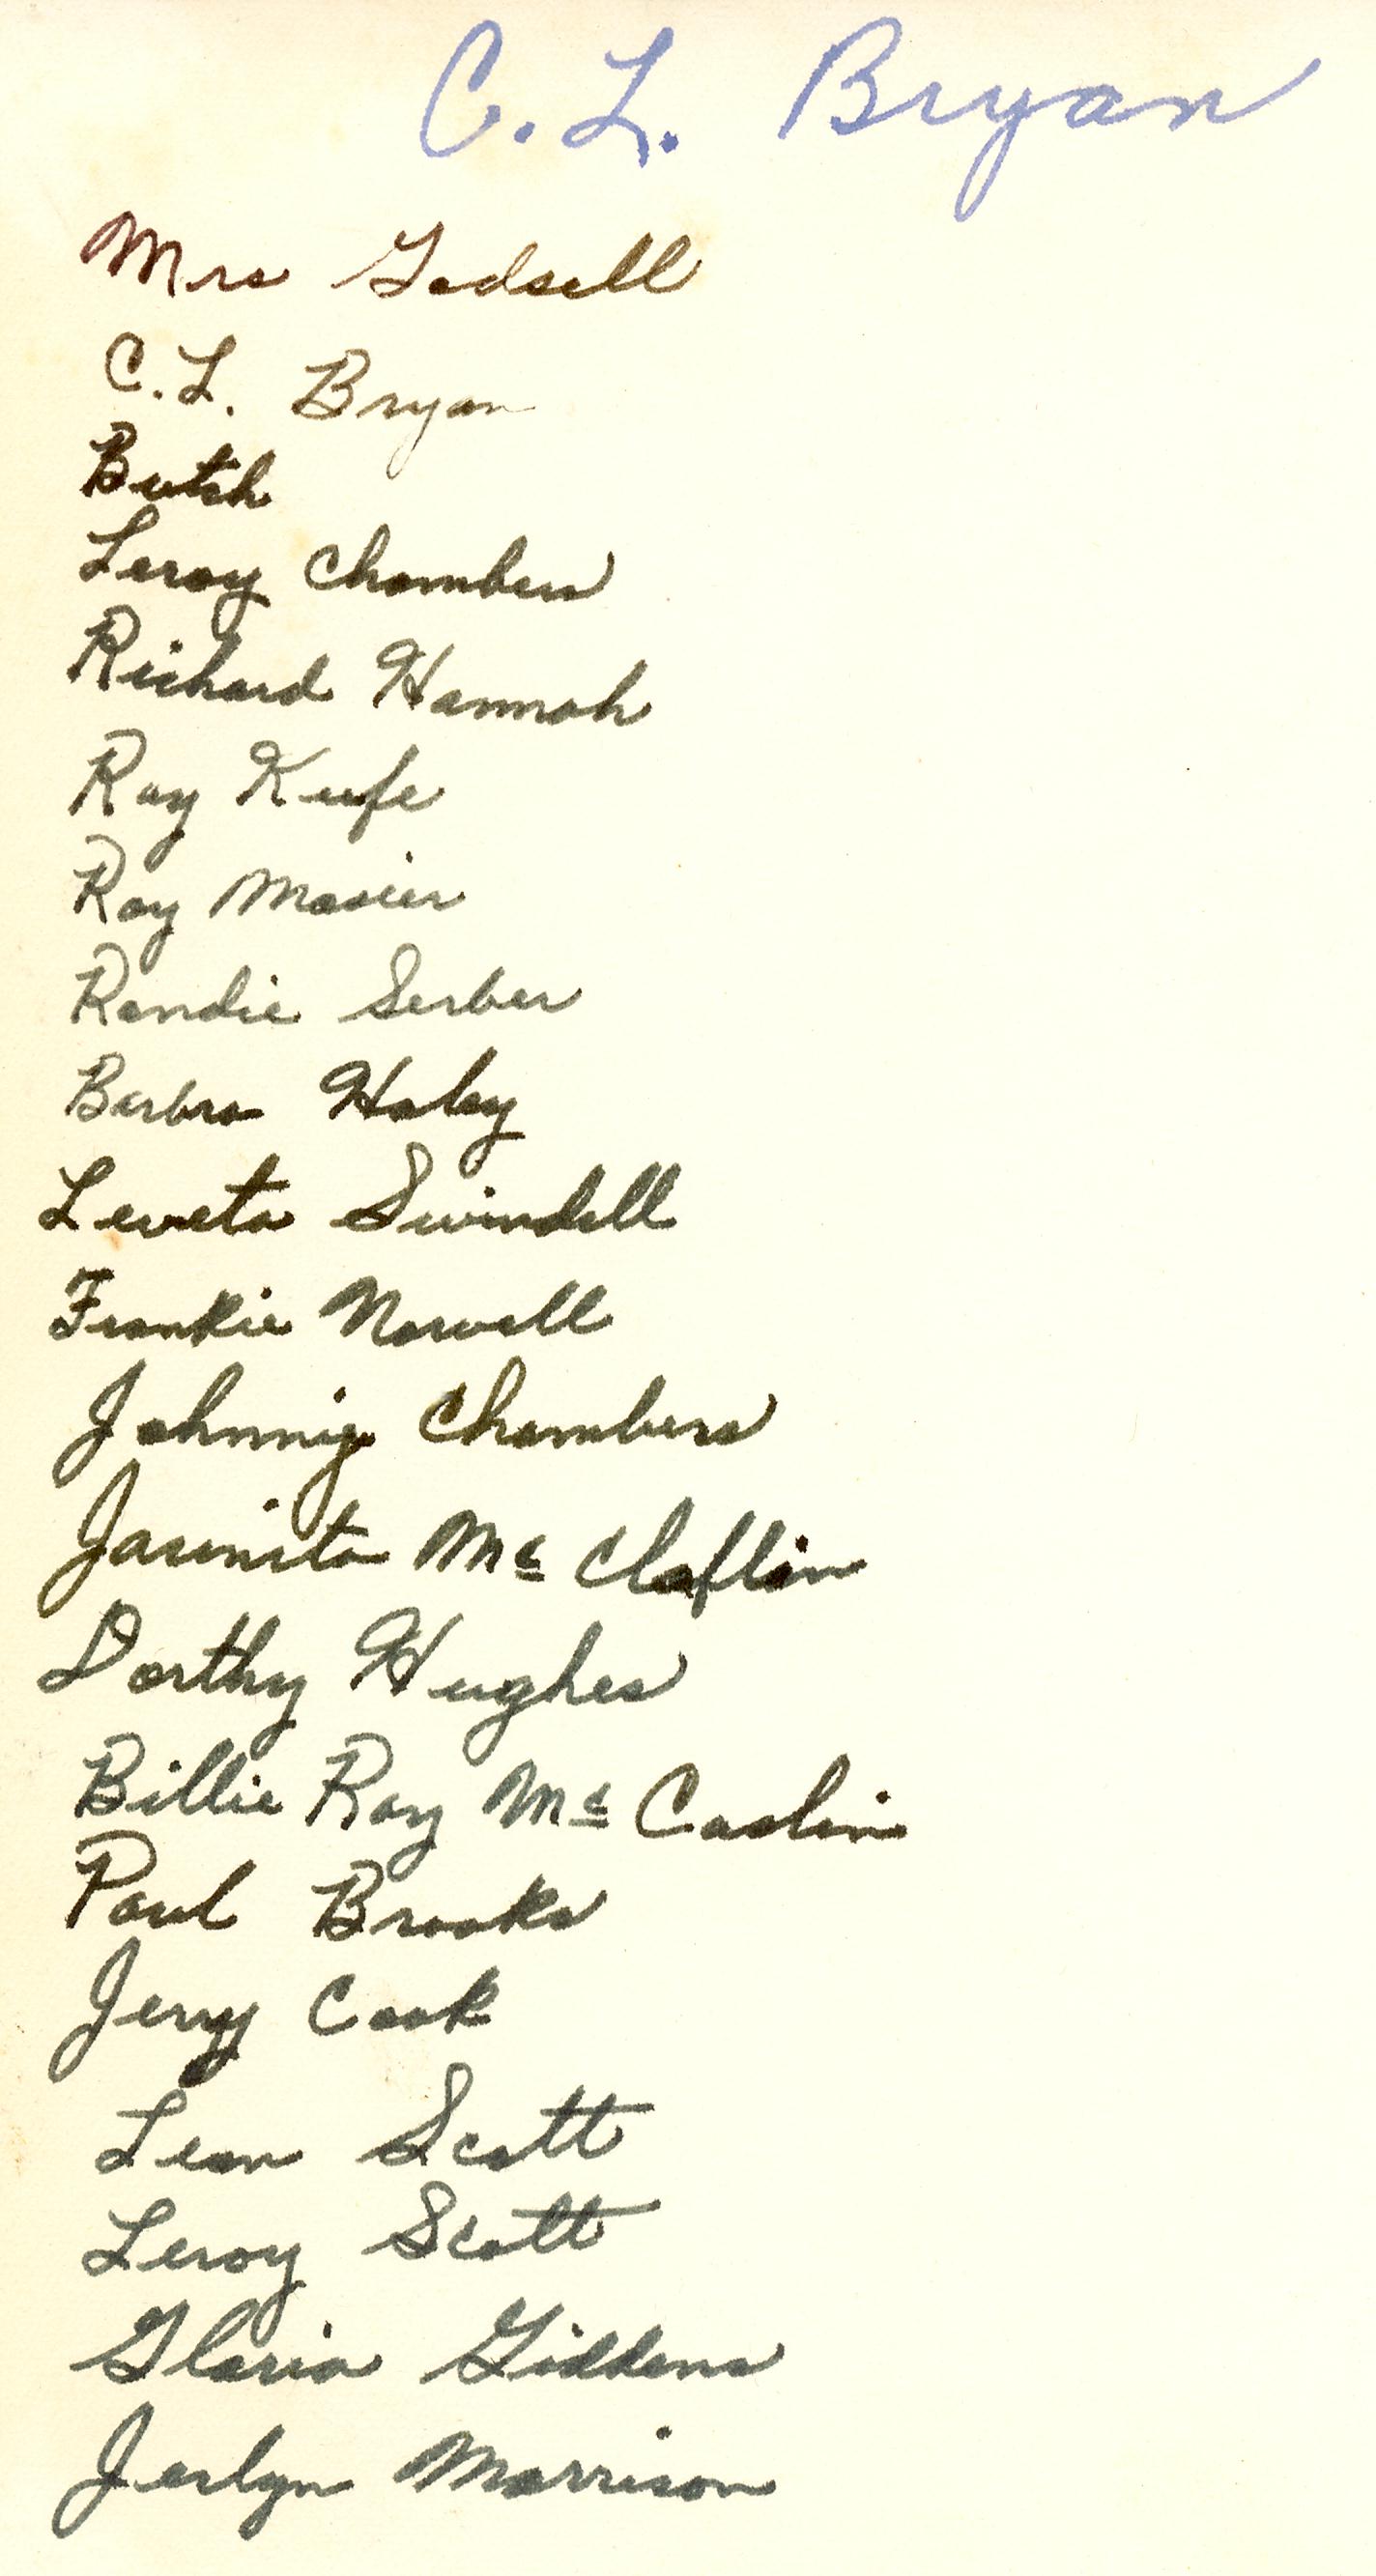 C. L. Bryan
Mrs Godsell
C. L. Bryan
Butch
Leroy Chambers
Richard Hannah
Ray Keefe
Roy Mosier
Randie Serber
Barbra Haley
Leveta Swindell
Frankie Norvell
Johnnie Chambers
Jasinita Mc Claflin
Dorthy Hughes
Billie Ray Mc Caslin
Paul Brooks
Jerry Cook
Leon Scott
Leroy Scott
Gloria Giddens
Jerlyn Morrison